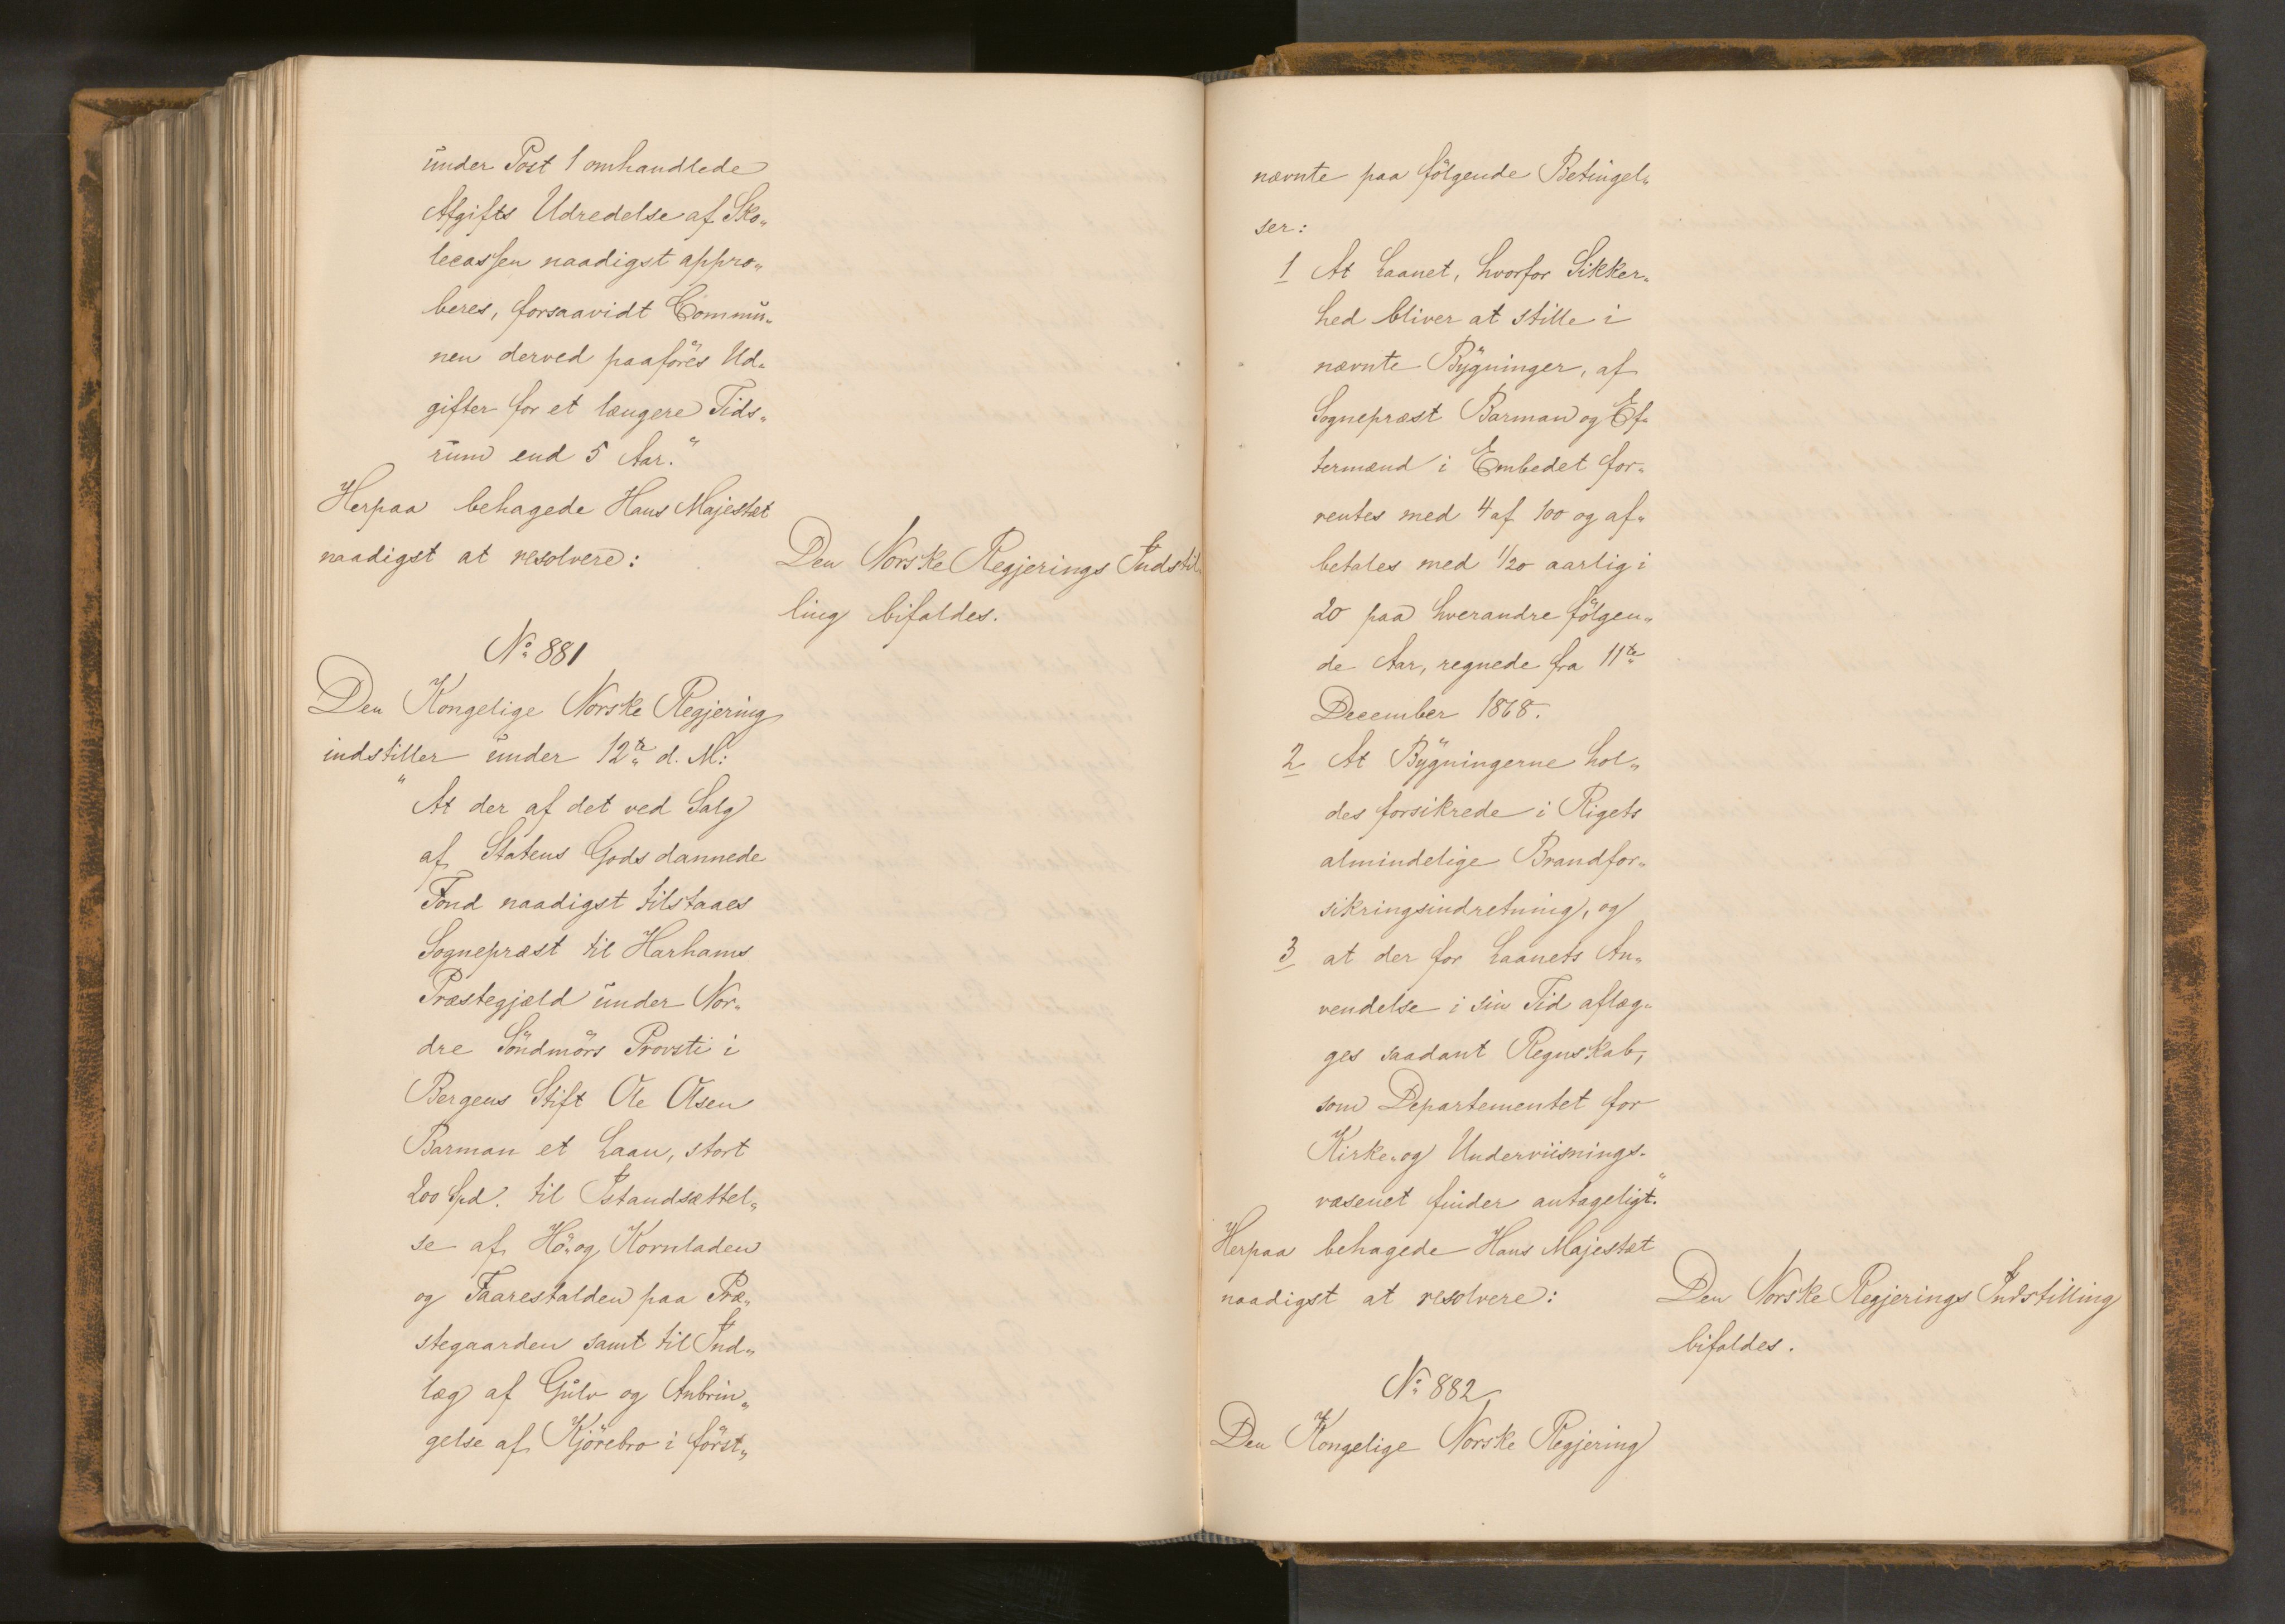 under Post 1 omhandlede
Afgifts Udredelse af Sko„
lecassen naadigst appro„
beres, forsaavidt Commu„
nen derved paaføres Ud„
gifter for et længere Tids„
rum end 5 Aar.“
Herpaa behagede Hans Majestæt
naadigst at resolvere:
Den Norske Regjerings Indstil„
ling bifaldes.
No 881
Den Kongelige Norske Regjering
indstiller under 12te d. M:
„At der af det ved Salg
af Statens Gods dannede
Fond naadigst tilstaaes
Sognepræst til Harhams
Præstegjæld under Nor„
dre Söndmörs Provsti i
Bergens Stift Ole Olsen
Barman et Laan, stort
200 Spd. til Istandsættel„
se af Hö- og Kornladen
og Faarestalden paa Præ„
stegaarden samt til Ind„
læg af Gulv og Anbrin„
gelse af Kjörebro i först„
nævnte paa fölgende Betingel„
ser:
1 At Laanet, hvorfor Sikker„
hed bliver at stille i
nævnte Bygninger, af
Sognepræst Barman og Ef„
termænd i Embedet for„
rentes med 4 af 100 og af„
betales med 1/20 aarlig i
20 paa hverandre fölgen„
de Aar, regnede fra 11te
December 1868.
2 At Bygningerne hol„
des forsikrede i Rigets
almindelige Brandfor„
sikringsindretning, og
3 at der for Laanets An„
vendelse i sin Tid aflæg„
ges saadant Regnskab,
som Departementet for
Kirke- og Underviisnings-
væsenet finder antageligt.“
Herpaa behagede Hans Majestæt
naadigst at resolvere:
Den Norske Regjerings Indstilling
bifaldes.
No 882
Den Kongelige Norske Regjering